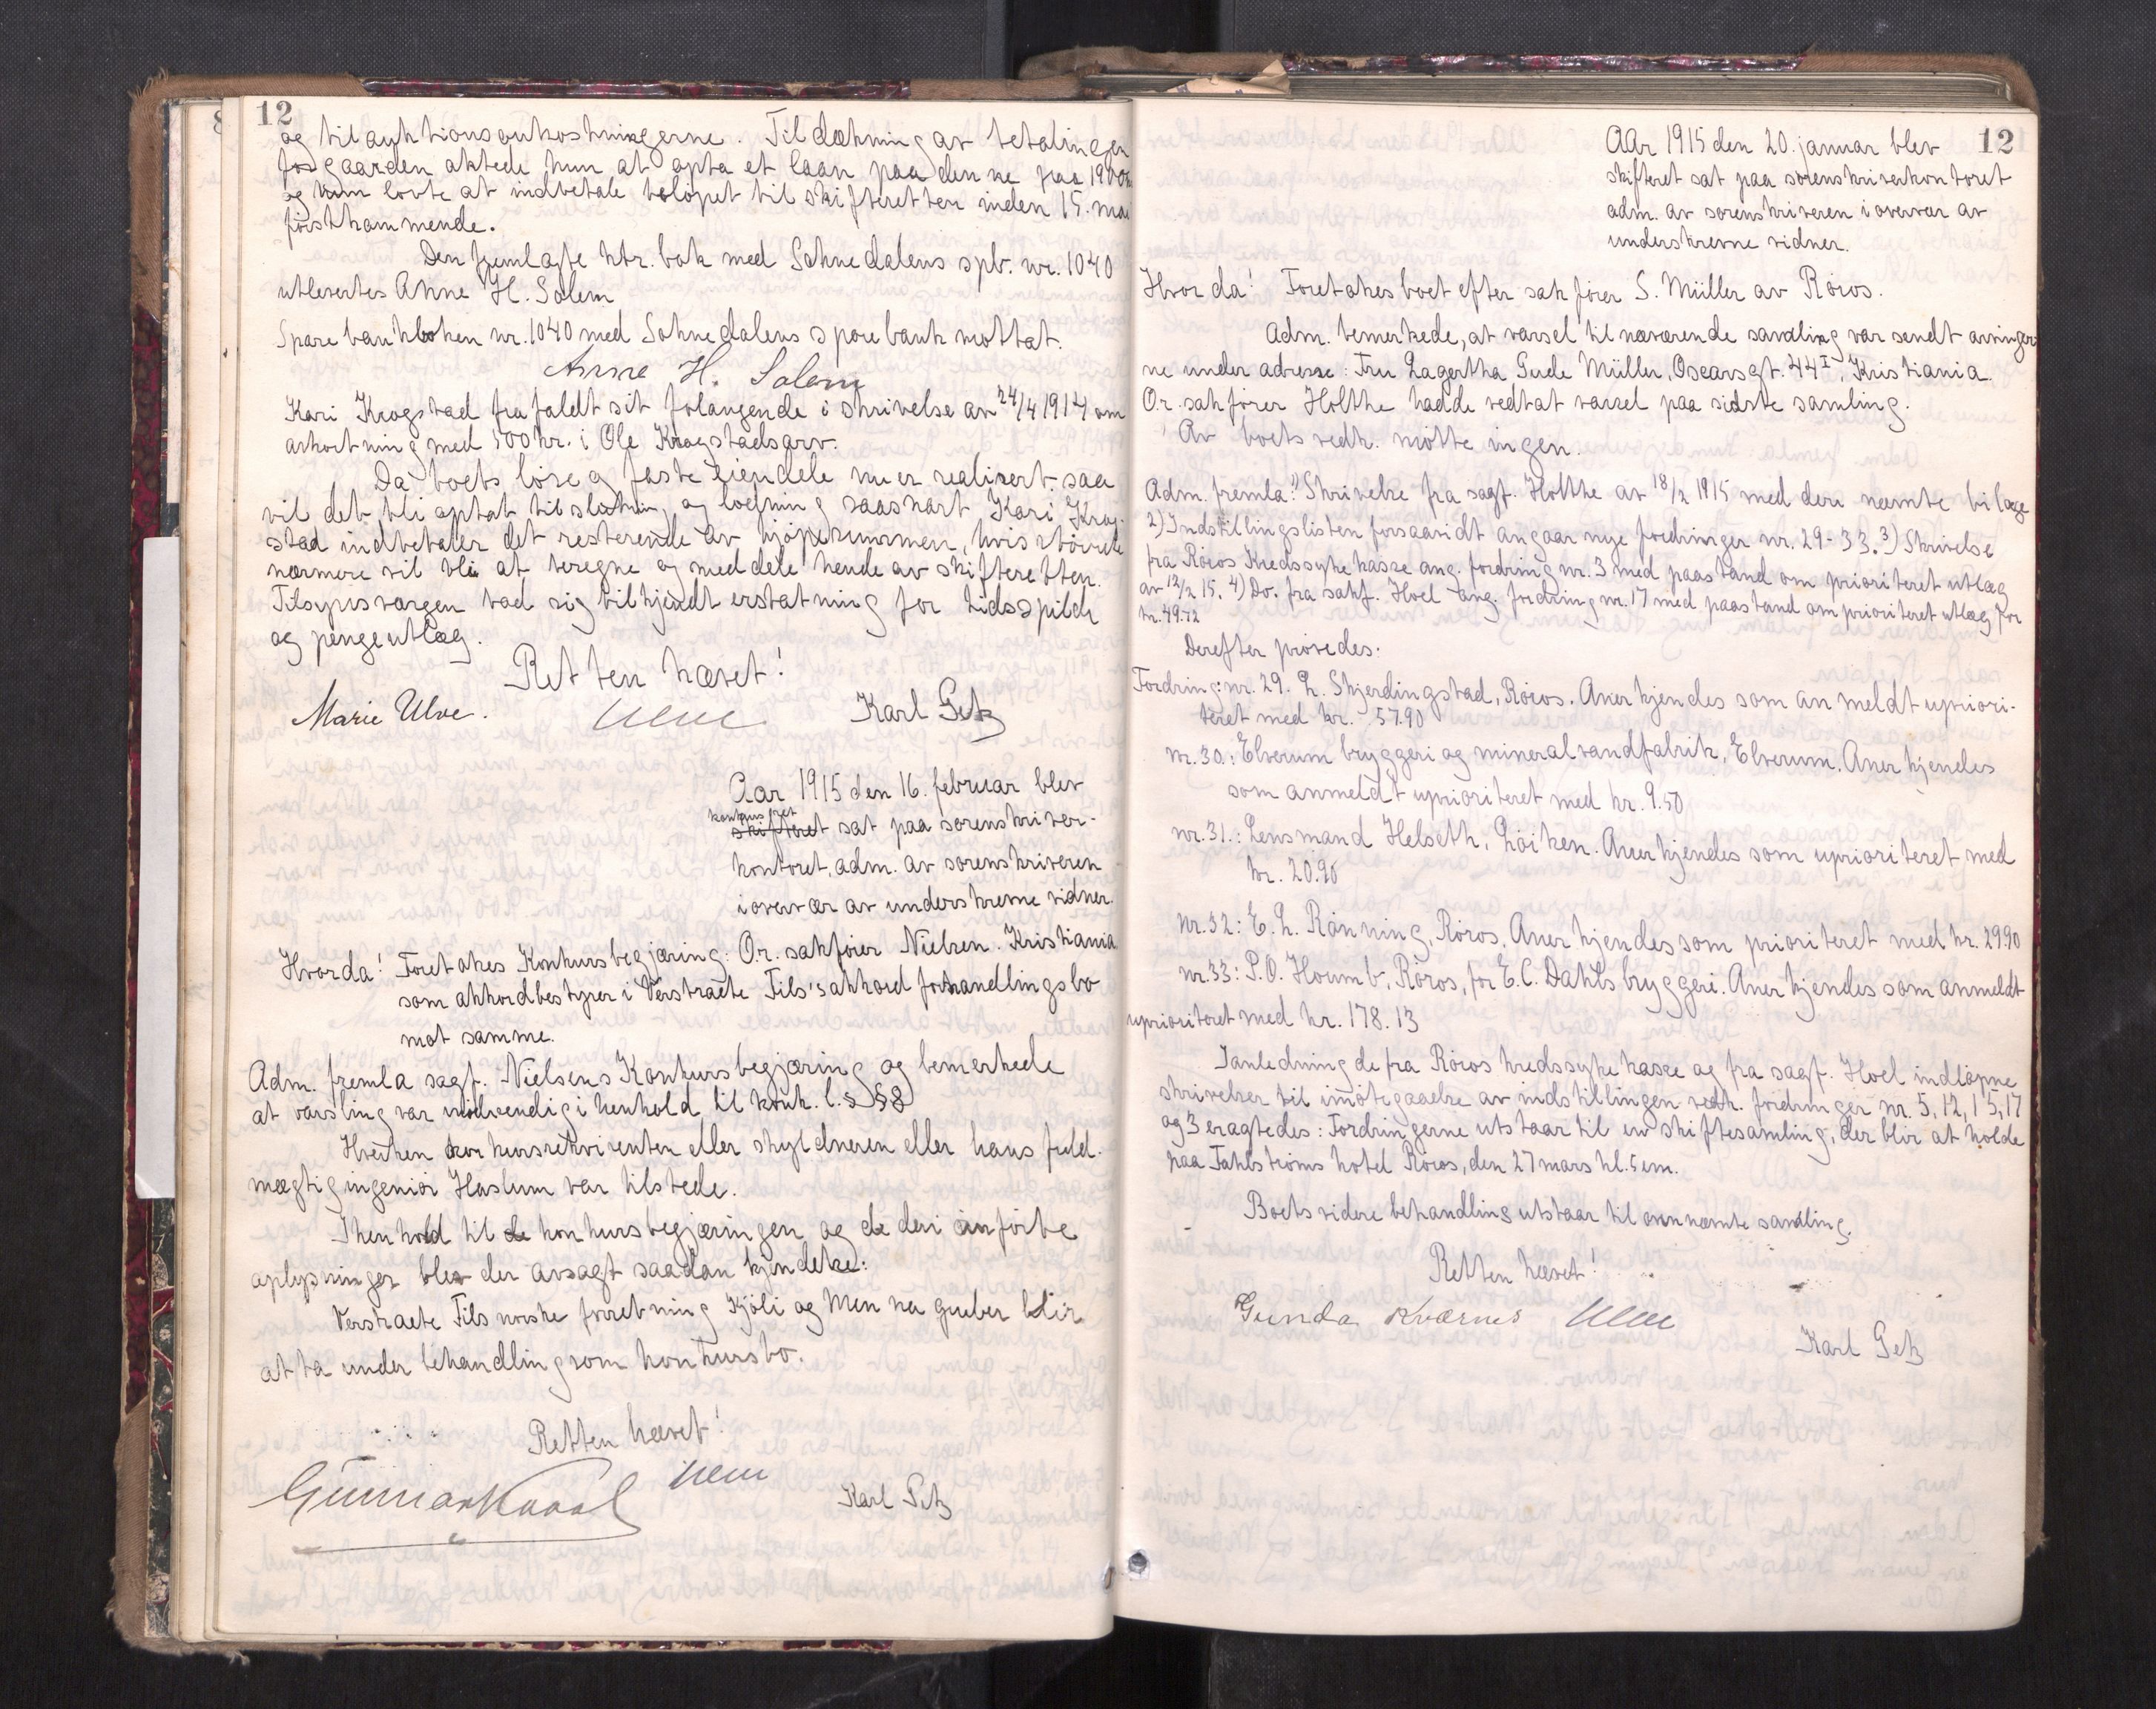 12
og til auktionsomkostningerne. Til dækning av betalingen
for gaarden aktede hun at opta et laan paa denne paa 1900 kr
og hun lovte at indbetale beløpet til skifteretten inden 15. mai
førstkommende.
Den fremlagte ktr. bok med Soknedalens spb. nr. 1040
utlevertes Anne H. Solem
Sparebankboken nr. 1040 med Soknedalens sparebank mottat.
Anne H. Solem
Kari Krogstad frafaldt sit forlangende i skrivelse av 24/4 1914 om
avkortning med 500 kr. i Ole Krogstads arv.
Da boets løse og faste eiendele nu er realisert saa
vil det bli optat til slutning og lodning saasnart Kari Krog-
stad indbetaler det resterende av kjøpesummen, hvis størrelse
nærmere vil bli at beregne og meddele hende av skifteretten.
Tilsynsvergen bad sig tilkjendt erstatning for tidsspilde
og pengeutlæg.
Retten hævet!
Marie Ulve. Karl Getz
Aar 1915 den 16. februar blev
konkursret
skifteret sat paa sorenskriver-
kontoret, adm. av sorenskriveren
i overvær av underskrevne vidner.
Hvorda! Foretakes Konkursbegjæring: O.r. sakfører Nielsen. Kristiania
som akkordbestyrer i Verstraete Fils's akkordforhandlingsbo
mot samme.
Adm. fremla sagf. Nielsens Konkursbegjæring og bemerkede
at varsling var unødvendig i henhold til konk. l.s §8
Hverken konkursrekvirenten eller skyldneren eller hans fuld-
mægtig ingeniør Haslum var tilstede.
I henhold til de konkursbegjæringen og de deri anførte
oplysninger blev der avsagt saadan kjendelse:
Verstraete Fils norske forretning Kjøli og Menna gruber blir
at ta under behandling som konkursbo.
Retten hævet!
Gunnar Kvaal Karl Getz
12
AAr 1915 den 20. januar blev
skifteret sat paa sorenskriverkontoret
adm. av sorenskriveren i overvær av
underskrevne vidner.
Hvor da! Foretakes boet efter sakfører S. Müller av Røros.
Adm. bemerkede, at varsel til nærværende samling var sendt arvinger
ne under adresse: Fru Lagertha Gude Müller, Oscarsgt. 44 I, Kristiania.
O.r. sakfører Holthe hadde vedtat varsel paa sidste samling.
Av boets vedk. møtte ingen.
Adm. fremla: 1) Skrivelse fra sagf. Holthe av 18/2 1915 med deri nævnte bilage
2) Indstillingslisten forsaavidt angaar nye fordringer nr. 29-33. 3) Skrivelse
fra Røros Kredssykekasse ang. fordring nr. 3 med paastand om prioritert utlæg
av 12/2 15. 4) Do. fra sakf. Hoel ang. fordring nr. 17 med paastand om prioriteret utlæg for
kr. 49.72
Derefter prøvedes:
Fordring: nr. 29. L. Skjerdingstad, Røros. Anerkjendes som anmeldt upriori-
teret med kr. 57.90
nr. 30.: Elverum bryggeri og mineralvandfabrik, Elverum. Anerkjendes
som anmeldt uprioriteret med kr. 9.50
nr. 31.: Lensmand Helseth, Løiken. Anerkjendes som uprioriteret med
kr. 20.90
nr. 32: E. L. Rønning, Røros. Anerkjendes som prioriteret med kr. 29.90
nr. 33: P.O. Houmb, Røros, for E.C. Dahls bryggeri. Anerkjendes som anmeldt
uprioriteret med kr. 178.13
I anledning de fra Røros kredssykekasse og fra sagf. Hoel indløpne
skrivelser til imøtegaaelse av indstillingen vedk. fordringer nr. 5, 12, 15, 17
og 3 eragtedes: Fordringerne utstaar til en skiftesamling, der blir at holde
paa Fahlstrøms hotel Røros, den 27 mars kl. 5 em.
Boets videre behandling utstaar til ovennævnte samling.
Retten hævet!
Gunda Kværnes
Karl Getz